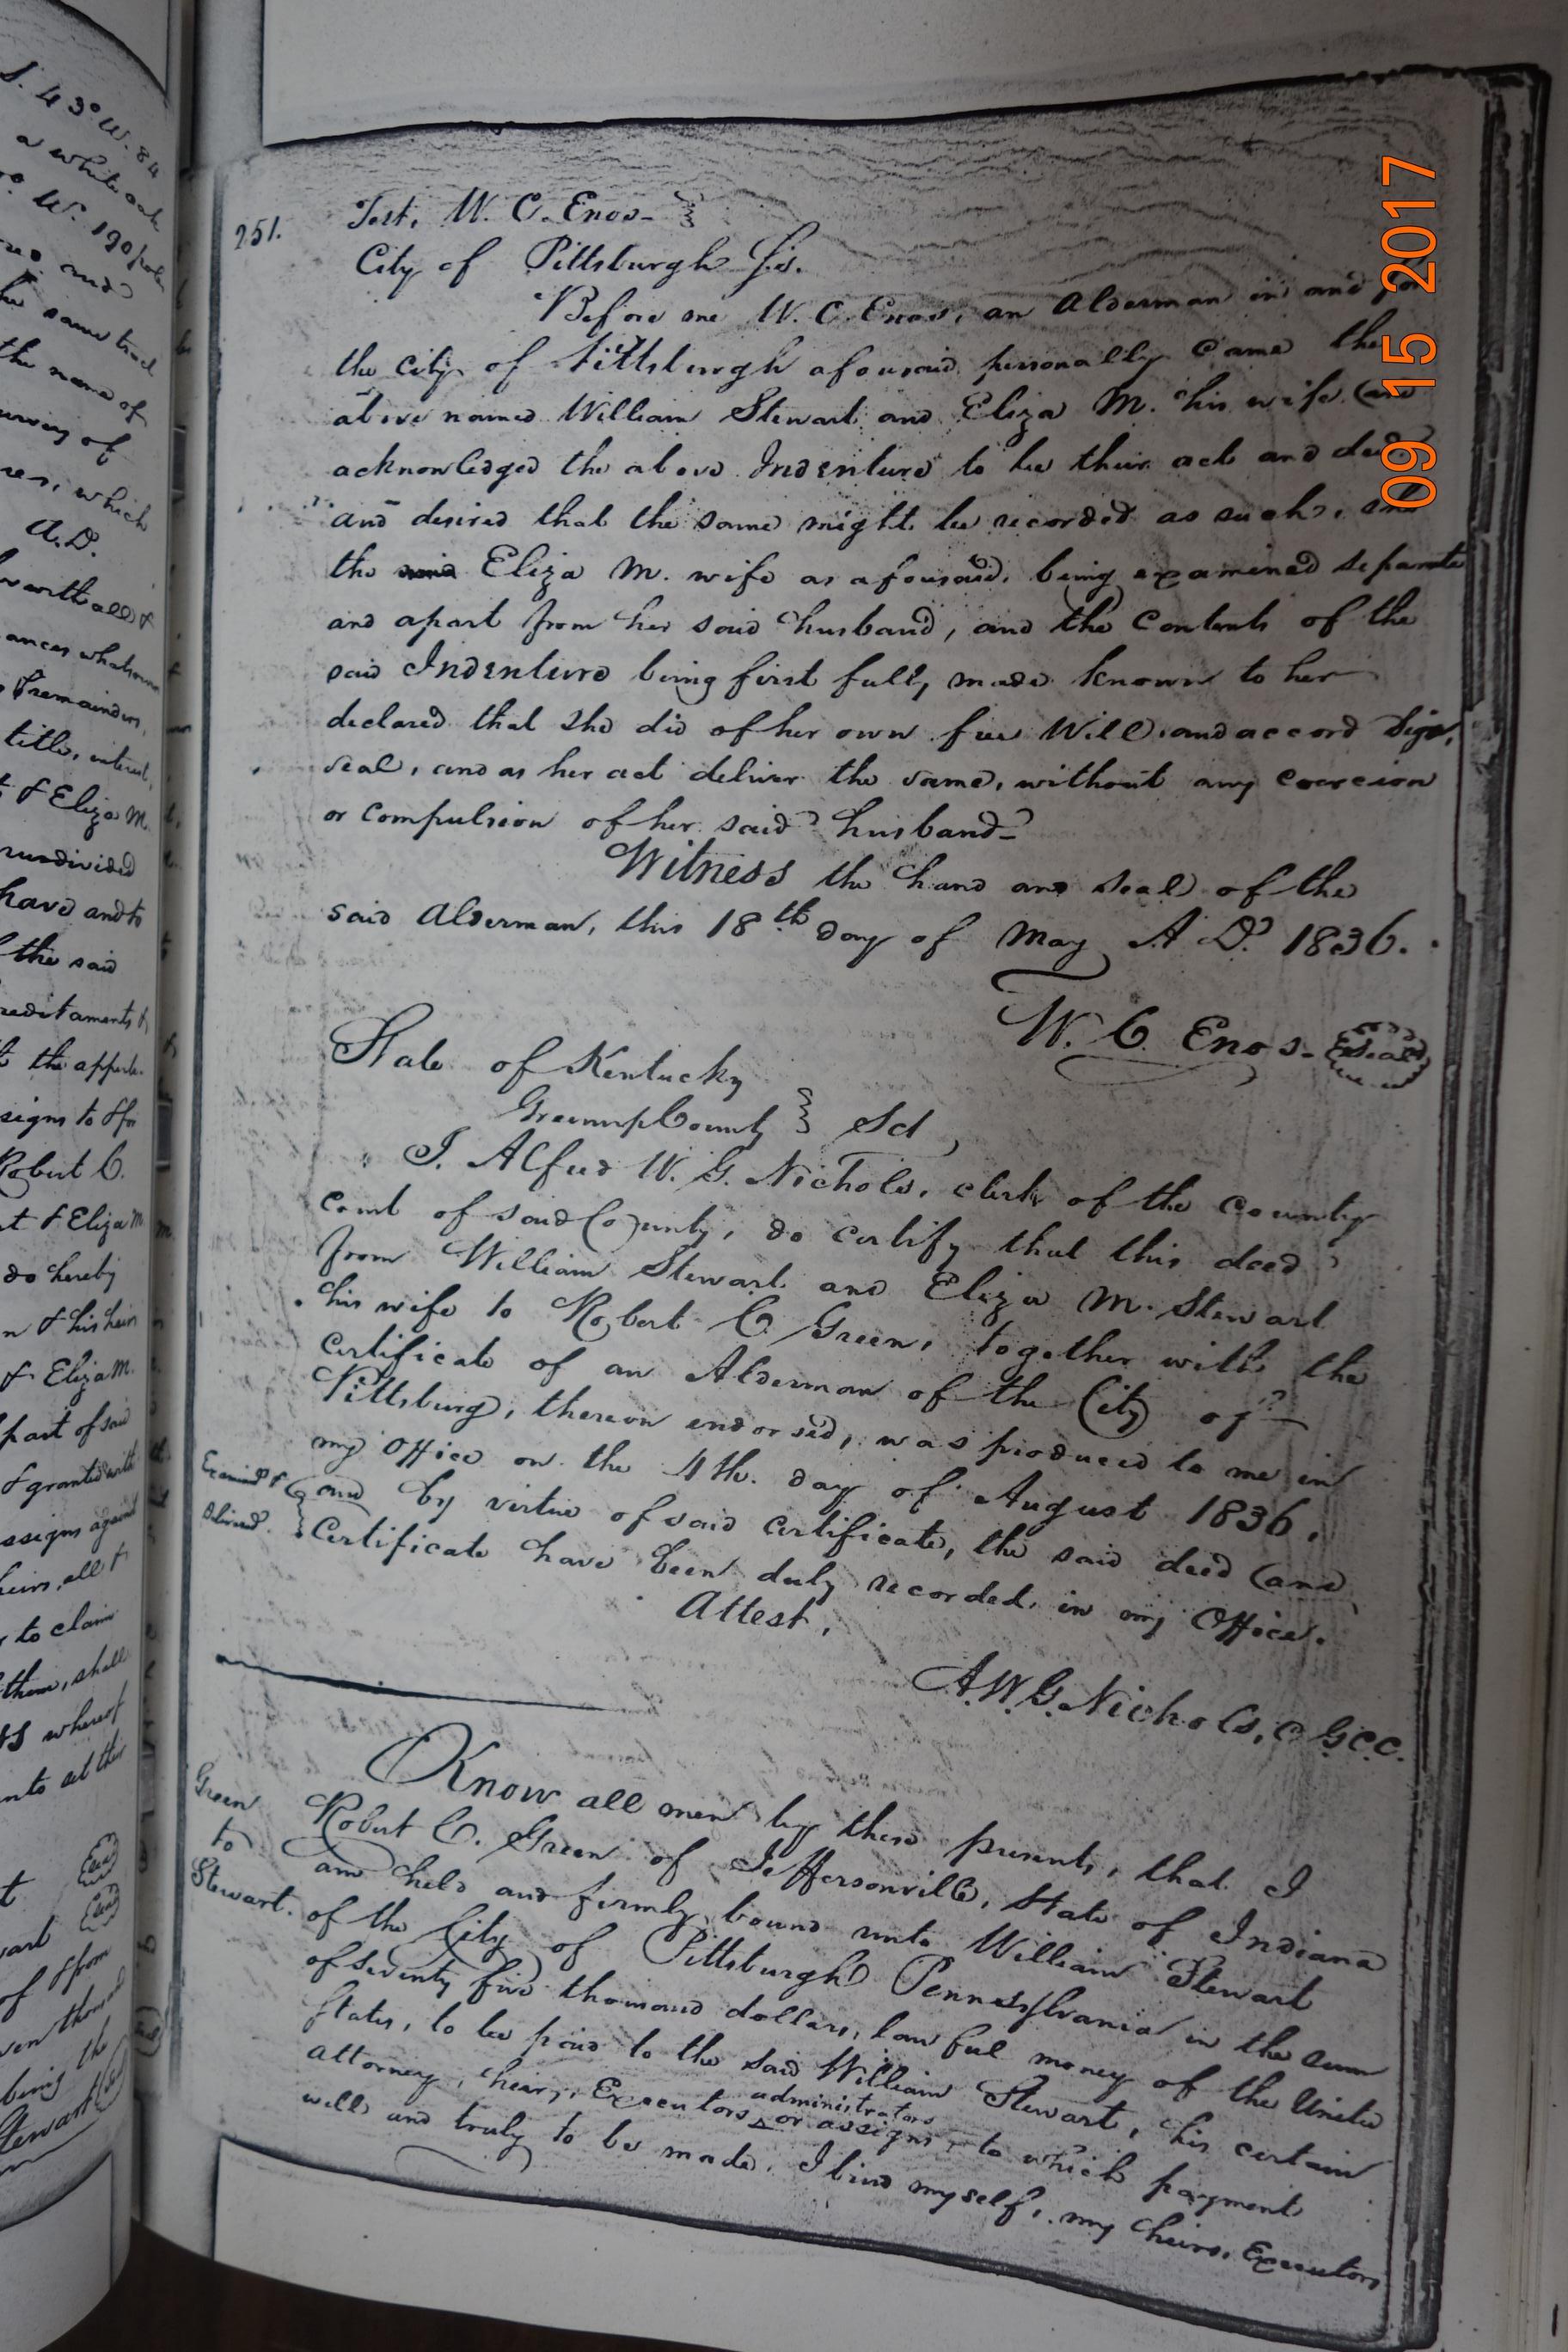 S. 43° W. 84
a white oak
W. 190 pole
and
same tract
the name of
which
A.D.
the said
the appurte-
Robert C.
& Eliza M
do hereby
& his heirs
& Eliza M.
part of said
& granted with
to claim
them, shall
whereof
251.
Test, W. C. Enos-
City of Pittsburgh Ss.
Before me W. C. Enos, an Alderman in and for
the city of Pittsburgh aforesaid personally came the
above named William Stewart and Eliza M. his wife (and
acknowledged the above Indenture to be their act and deed
and desired that the same might be recorded as such, she
the said Eliza M. wife as aforesaid, being examined separate
and apart from her said husband, and the Contents of the
said Indenture being first fully made known to her
declared that she did of her own free Will and accord Sign,
seal, and as her act deliver the same, without any coercion
or compulsion of her said husband-
Witness the hand and seal of the
said Alderman, this 18th day of May A D. 1836.
W. C. Enos- Seal
State of Kentucky
Greenup County } Sct
I. Alfred W. G. Nichols, clerk of the County
court of said County, do certify that this deed
from William Stewart and Eliza M. Stewart
his wife to Robert C. Green, together with the
certificate of an Alderman of the City of
Pittsburg, thereon endorsed, was produced to me in
my Office on the 4th. day of August 1836,
and by virtue of said certificate, the said deed (and
Certificate have been duly recorded in my Office.
Attest,
A. W. G. Nichols, C G C C.
Examined &
delivered.
Green
to
Stewart.
Know all men by these presents, that I
Robert C. Green of Jeffersonville, State of Indiana
am held and firmly bound unto William Stewart
of the City of Pittsburgh Pennesylvania in the sum
of seventy five thousand dollars, lawful money of the United
States, to be paid to the said William Stewart, his certain
attorney, heirs, Executors administrators or assigns, to which payment
well and truly to be made, I bind myself, my heirs, Executors
09 15 2017